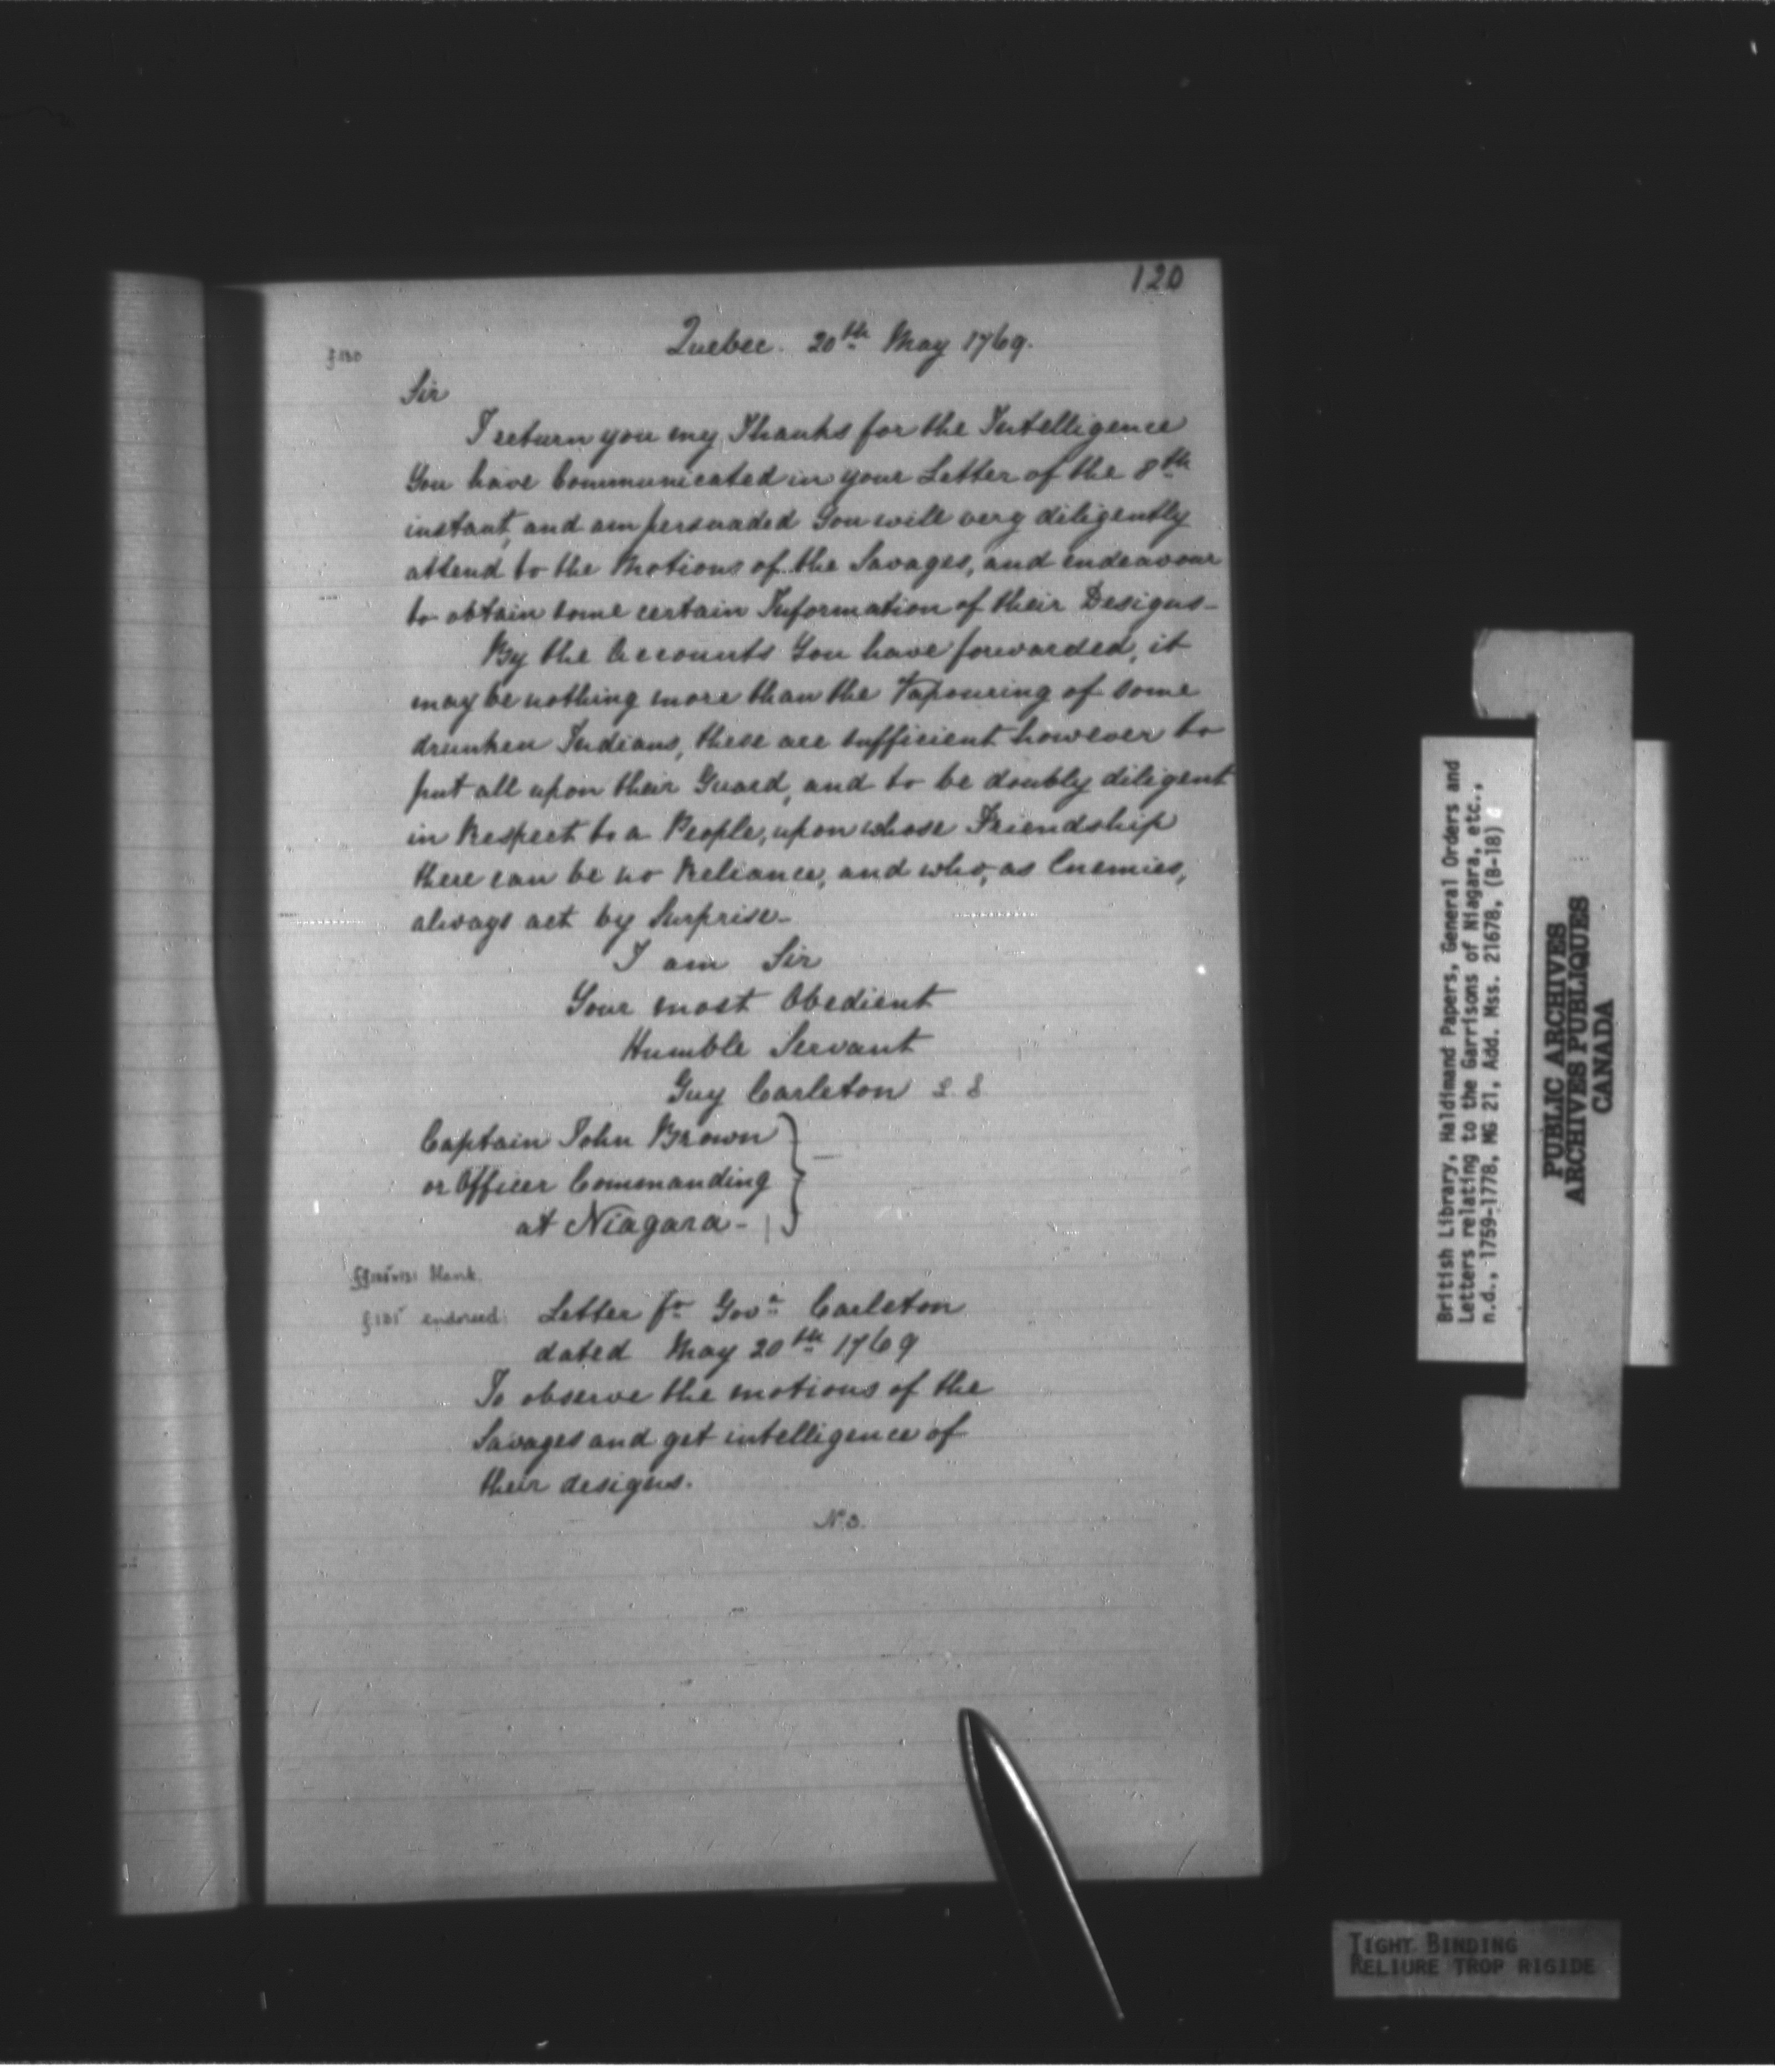 120
f.130
Quebec. 20th May 1769.
Sir
I return you my Thanks for the Intelligence
You have Communicated in your Letter of the 8th
instant, and am persuaded You will very diligently
attend to the Motions of the Savages, and endeavour
to obtain some certain Information of their Designs_
By the Accounts You have forwarded, it
may be nothing more than the Vapouring of some
drunken Indians, these are sufficient however to
put all upon their Guard, and to be doubly diligent
in Respect to a People, upon whose Friendship
there can be no Reliance, and who, as Enemies,
always act by Surprise_
I am Sir
Your most Obedient
Humble Servant
Guy Carleton
Captain John Brown
or Officer Commanding
at Niagara-
blank.
endorsed: Letter fr Govr Carleton
dated May 20th 1769
To observe the motions of the
Savages and get intelligence of
their designs.
British Library, Haldimand Papers, General Orders and
Letters relating to the Garrisons of Niagara, etc.,
n.d., 1759-1778, MG 21, Add. Mss. 21678, (B-18)
PUBLIC ARCHIVES
ARCHIVES PUBLIQUES
CANADA
TIGHT BINDING
RELIURE TROP RIGIDE